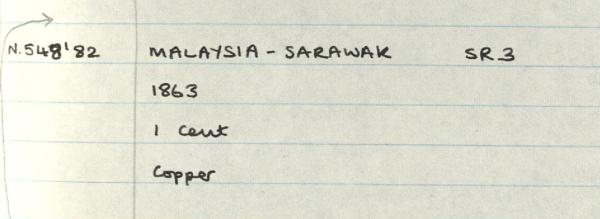 N.548'82 MALAYSIA - SARAWAK SR.3
1863
1 cent
Copper